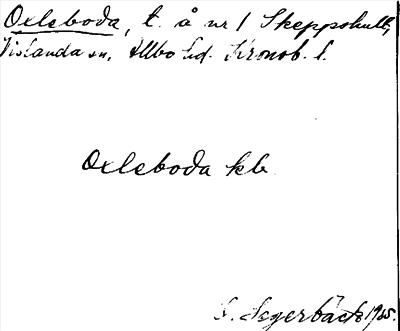 Oxleboda, t. å nr 1 Skeppshult,
Vislanda sn, Allbo hd. Kronob. l.
Oxleboda kb
G. Segerbäck 1925.